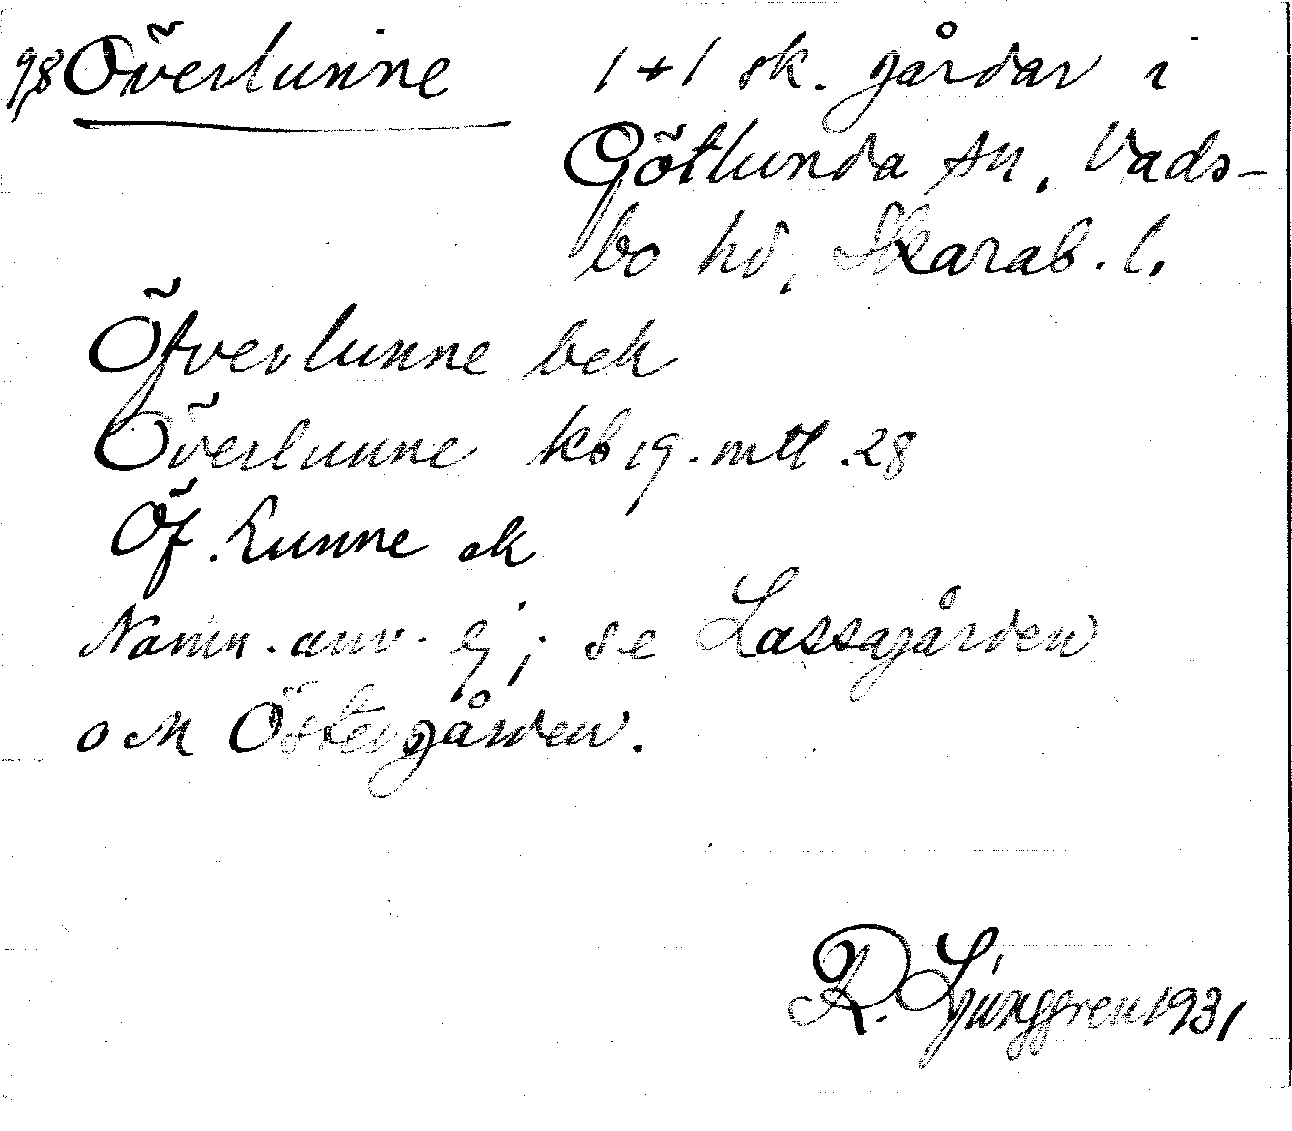 98 Överlunne 1+1 sk. gårdar i
Götlunda sn, Vads-
bo hd, Skarab. l.
Öfverlunne bek
Överlunne kb 19. mtl .28
Öf. Lunne ek
Namn. anv. ej; se Lassagården
och Östergården.
R. Ljunggren 1931